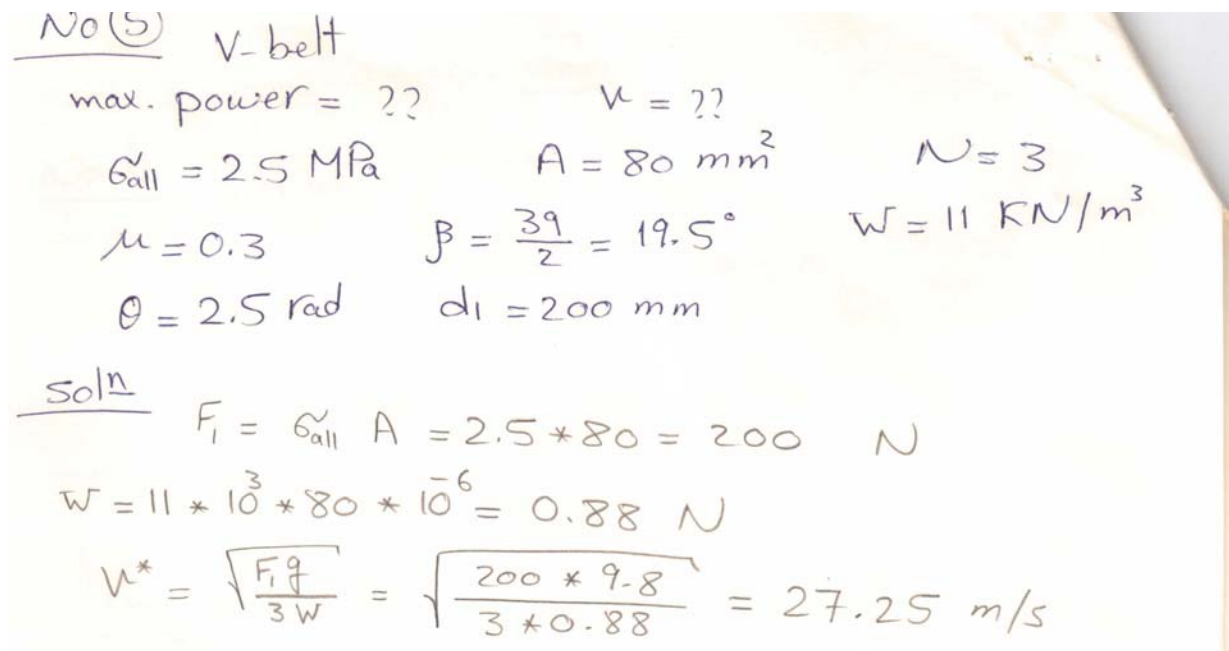 No (5) V-belt
max. power = ?? v = ??
σall = 2.5 MPa A = 80 mm² N = 3
μ = 0.3 β = 39/2 = 19.5° w = 11 KN/m³
θ = 2.5 rad d1 = 200 mm
Soln
F1 = σall A = 2.5 * 80 = 200 N
w = 11 * 10³ * 80 * 10⁻⁶ = 0.88 N
v* = √(F1 g / 3 w) = √(200 * 9.8 / 3 * 0.88) = 27.25 m/s